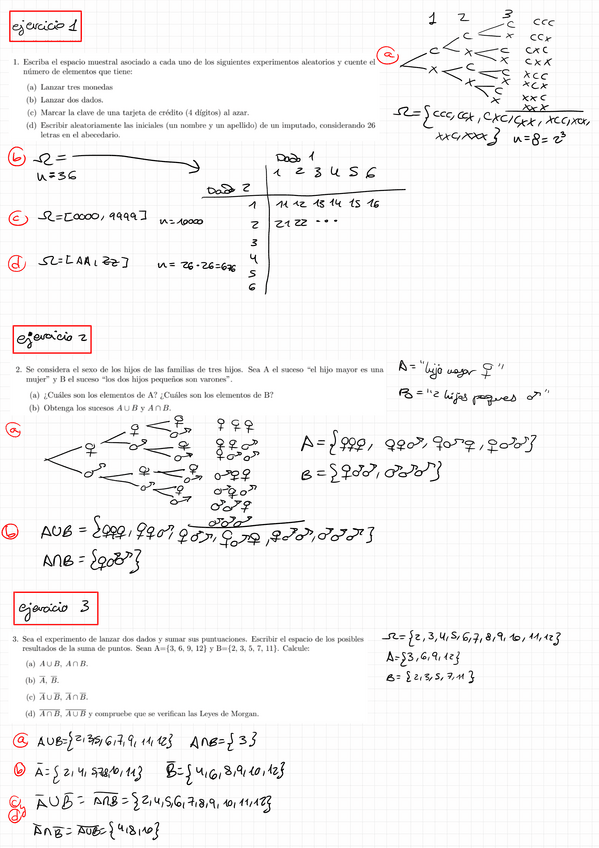 ejercicio 1
1. Escriba el espacio muestral asociado a cada uno de los siguientes experimentos aleatorios y cuente el
número de elementos que tiene:
(a) Lanzar tres monedas
(b) Lanzar dos dados.
(c) Marcar la clave de una tarjeta de crédito (4 dígitos) al azar.
(d) Escribir aleatoriamente las iniciales (un nombre y un apellido) de un imputado, considerando 26
letras en el abecedario.
a
1 2 3
C C C CCC
X CCX
X C CXC
X CXX
X C C XCC
X XCX
X C XXC
X XXX
Ω={CCC, CCX, CXC, CXX, XCC, XCX,
XXC, XXX} n=8=2³
b Ω=
n=36
Dado 1
1 2 3 4 5 6
Dado 2
1 11 12 13 14 15 16
2 21 22 ...
3
4
5
6
c Ω=[0000, 9999] n=10000
d Ω=[AA, ZZ] n= 26·26=676
ejercicio 2
2. Se considera el sexo de los hijos de las familias de tres hijos. Sea A el suceso “el hijo mayor es una
mujer” y B el suceso “los dos hijos pequeños son varones”.
(a) ¿Cuáles son los elementos de A? ¿Cuáles son los elementos de B?
(b) Obtenga los sucesos A ∪ B y A ∩ B.
A= "hijo mayor ♀"
B= "2 hijos peques ♂"
a
♀ ♀ ♀ ♀♀♀
♂ ♀♀♂
♂ ♀ ♀♂♀
♂ ♀♂♂
♂ ♀ ♀ ♂♀♀
♂ ♂♀♂
♂ ♀ ♂♂♀
♂ ♂♂♂
A={♀♀♀, ♀♀♂, ♀♂♀, ♀♂♂}
B={♀♂♂, ♂♂♂}
b A∪B = {♀♀♀, ♀♀♂, ♀♂♂, ♀♂♀, ♀♂♂, ♂♂♂}
A∩B = {♀♂♂}
ejercicio 3
3. Sea el experimento de lanzar dos dados y sumar sus puntuaciones. Escribir el espacio de los posibles
resultados de la suma de puntos. Sean A={3, 6, 9, 12} y B={2, 3, 5, 7, 11}. Calcule:
(a) A ∪ B, A ∩ B.
(b) A̅, B̅.
(c) A̅ ∪ B̅, A̅ ∩ B̅.
(d) A̅ ̅∩̅ ̅B̅, A̅ ̅∪̅ ̅B̅ y compruebe que se verifican las Leyes de Morgan.
Ω={2, 3, 4, 5, 6, 7, 8, 9, 10, 11, 12}
A={3, 6, 9, 12}
B={2, 3, 5, 7, 11}
a A∪B={2, 3, 5, 6, 7, 9, 11, 12} A∩B={3}
b A̅={2, 4, 5, 7, 8, 10, 11} B̅={4, 6, 8, 9, 10, 12}
c y d A̅∪B̅ = A̅∩̅B̅ = {2, 4, 5, 6, 7, 8, 9, 10, 11, 12}
A̅∩B̅ = A̅∪̅B̅ = {4, 8, 10}